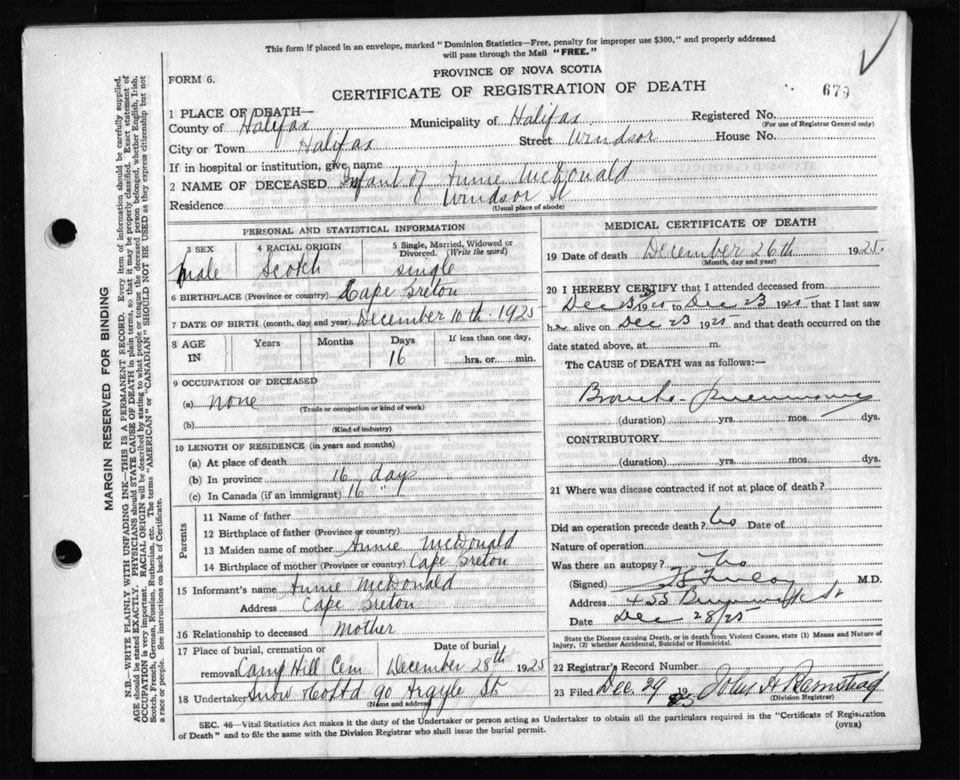 This form if placed in an envelope, marked "Dominion Statistics—Free, penalty for improper use $300," and properly addressed
will pass through the Mail "FREE."
FORM 6.
PROVINCE OF NOVA SCOTIA
CERTIFICATE OF REGISTRATION OF DEATH
679
1 PLACE OF DEATH—
County of Halifax Municipality of Halifax Registered No.
(For use of Registrar General only)
City or Town Halifax Street Windsor House No.
If in hospital or institution, give name
2 NAME OF DECEASED Infant of Annie McDonald
Residence Windsor St
(Usual place of abode)
PERSONAL AND STATISTICAL INFORMATION
3 SEX 4 RACIAL ORIGIN 5 Single, Married, Widowed or
Divorced. (Write the word)
Male Scotch Single
6 BIRTHPLACE (Province or country) Cape Breton
7 DATE OF BIRTH (month, day and year) December 10th 1925
8 AGE Years Months Days If less than one day,
IN 16 hrs. or min.
9 OCCUPATION OF DECEASED
(a) none
(Trade or occupation or kind of work)
(b)
(Kind of industry)
10 LENGTH OF RESIDENCE (in years and months)
(a) At place of death
(b) In province 16 days
(c) In Canada (if an immigrant) 16 "
Parents
11 Name of father
12 Birthplace of father (Province or country)
13 Maiden name of mother Annie McDonald
14 Birthplace of mother (Province or country) Cape Breton
15 Informant's name Annie McDonald
Address Cape Breton
16 Relationship to deceased Mother
17 Place of burial, cremation or Date of burial
removal Camp Hill Cem December 28th 1925
18 Undertaker Snow & Co Ltd 90 Argyle St.
(Name and address)
MEDICAL CERTIFICATE OF DEATH
19 Date of death December 26th 1925.
(Month, day and year)
20 I HEREBY CERTIFY that I attended deceased from
Dec 23 1925 to Dec 23 1925 that I last saw
h alive on Dec 23 1925 and that death occurred on the
date stated above, at m.
The CAUSE OF DEATH was as follows:—
Broncho-Pneumonia
(duration) yrs. mos. dys.
CONTRIBUTORY
(duration) yrs. mos. dys.
21 Where was disease contracted if not at place of death?
Did an operation precede death? No Date of
Nature of operation
Was there an autopsy? No
(Signed) M.D.
Address 455 Brunswick St
Date Dec 28/25
State the Disease causing Death, or in death from Violent Causes, state (1) Means and Nature of
Injury, (2) whether Accidental, Suicidal or Homicidal.
22 Registrar's Record Number
23 Filed Dec 29 1925 John A Barnstead
(Division Registrar)
SEC. 46—Vital Statistics Act makes it the duty of the Undertaker or person acting as Undertaker to obtain all the particulars required in the "Certificate of Registration
of Death" and to file the same with the Division Registrar who shall issue the burial permit.
(OVER)
MARGIN RESERVED FOR BINDING
N.B.—WRITE PLAINLY WITH UNFADING INK—THIS IS A PERMANENT RECORD. Every item of information should be carefully supplied.
AGE should be stated EXACTLY. PHYSICIANS should STATE CAUSE OF DEATH in plain terms, so that it may be properly classified. Exact statement of
OCCUPATION is very important. RACIAL ORIGIN will be described by stating to what people or tongue the deceased person belonged, whether English, Irish,
Scotch, French, German, Russian, Ruthenian, etc. The terms "AMERICAN" or "CANADIAN" SHOULD NOT BE USED as they express citizenship but not
a race or people. See instructions on back of Certificate.